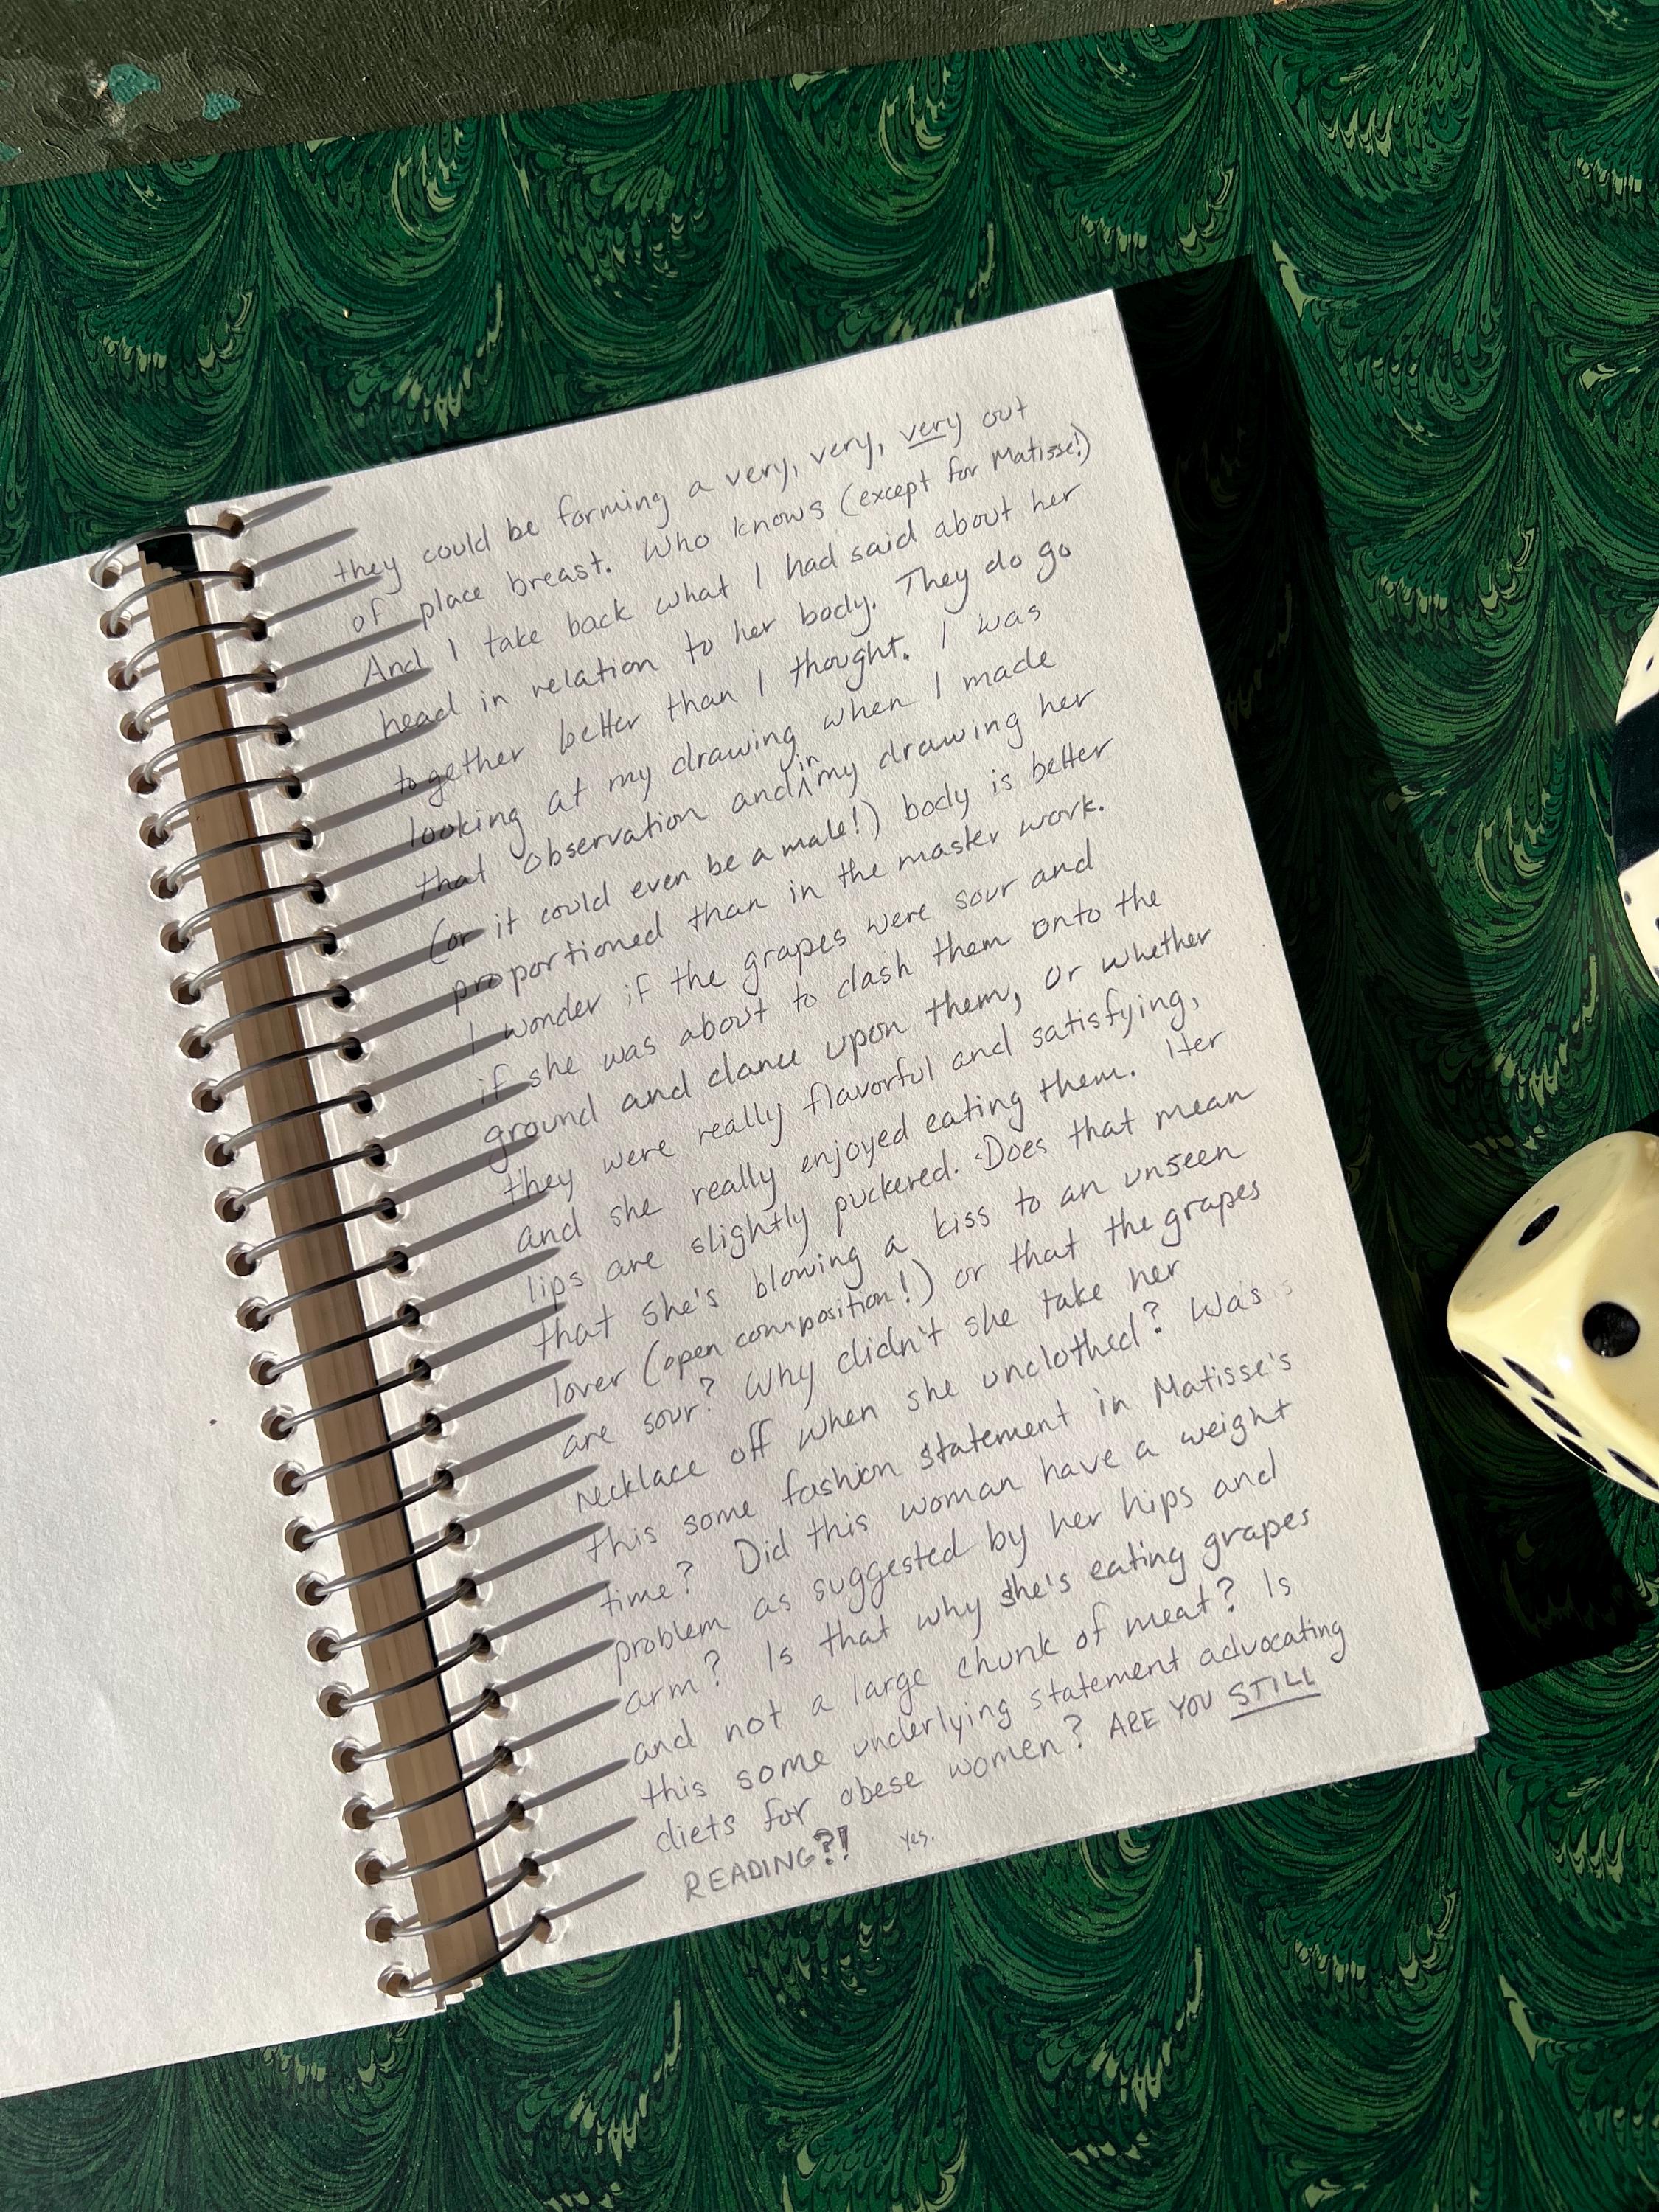 they could be forming a very, very, very out
of place breast. Who knows (except for Matisse!)
And I take back what I had said about her
head in relation to her body. They do go
together better than I thought. I was
looking at my drawing when I made
that observation and in my drawing her
(or it could even be a male!) body is better
proportioned than in the master work.
I wonder if the grapes were sour and
if she was about to dash them onto the
ground and dance upon them, or whether
they were really flavorful and satisfying,
and she really enjoyed eating them. Her
lips are slightly puckered. Does that mean
that she's blowing a kiss to an unseen
lover (open composition!) or that the grapes
are sour? Why didn't she take her
necklace off when she unclothed? Was
this some fashion statement in Matisse's
time? Did this woman have a weight
problem as suggested by her hips and
arm? Is that why she's eating grapes
and not a large chunk of meat? Is
this some underlying statement advocating
diets for obese women? ARE YOU STILL
READING?! Yes.